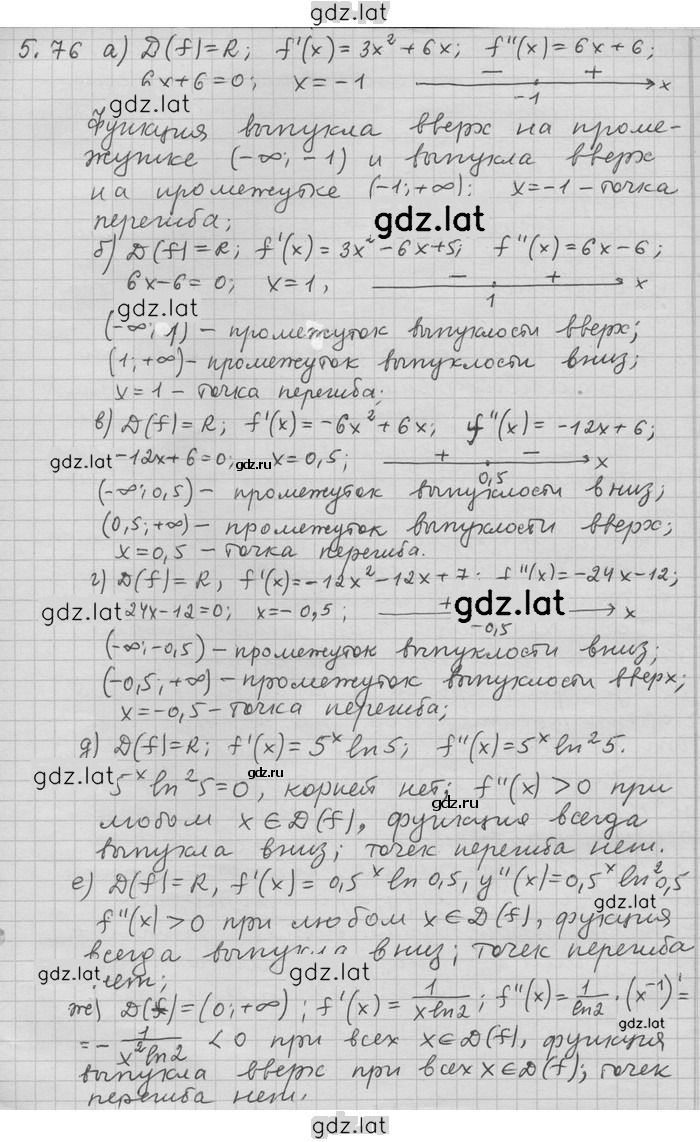 gdz.lat
5.76 а) D(f)=R; f'(x)=3x²+6x; f''(x)=6x+6;
6x+6=0; x=-1 − + x
gdz.lat -1
Функция выпукла вверх на проме-
жутке (-∞; -1) и выпукла вверх
на промежутке (-1; +∞): x=-1 - точка
перегиба; gdz.lat
б) D(f)=R; f'(x)=3x²-6x+5; f''(x)=6x-6;
6x-6=0; x=1, − + x
gdz.lat 1
(-∞; 1) - промежуток выпуклости вверх;
(1; +∞) - промежуток выпуклости вниз;
x=1 - точка перегиба;
в) D(f)=R; f'(x)=-6x²+6x; f''(x)=-12x+6;
gdz.lat -12x+6=0; gdz.lat x=0,5; + − x
0,5
(-∞; 0,5) - промежуток выпуклости вниз;
(0,5; +∞) - промежуток выпуклости вверх;
x=0,5 - точка перегиба.
г) D(f)=R, f'(x)=-12x²-12x+7; f''(x)=-24x-12;
gdz.lat 24x-12=0; x=-0,5; + gdz.lat x
-0,5
(-∞; -0,5) - промежуток выпуклости вниз;
(-0,5; +∞) - промежуток выпуклости вверх;
x=-0,5 - точка перегиба;
д) D(f)=R; f'(x)=5ˣ ln5; f''(x)=5ˣ ln²5.
gdz.lat gdz.lat
5ˣ ln²5=0, корней нет; f''(x)>0 при
gdz.lat
любом x∈D(f), функция всегда
выпукла вниз; точек перегиба нет.
е) D(f)=R, f'(x)=0,5ˣ ln0,5, y''(x)=0,5ˣ ln²0,5
gdz.lat
f''(x)>0 при любом x∈D(f), функция
всегда выпукла вниз; точек перегиба
gdz.lat gdz.lat
нет;
же) D(f)=(0; +∞); f'(x)=1/(x ln2); f''(x)=1/ln2·(x⁻¹)'=
gdz.lat
=-1/(x² ln2) <0 при всех x∈D(f), функция
выпукла вверх при всех x∈D(f); точек
перегиба нет.
gdz.lat